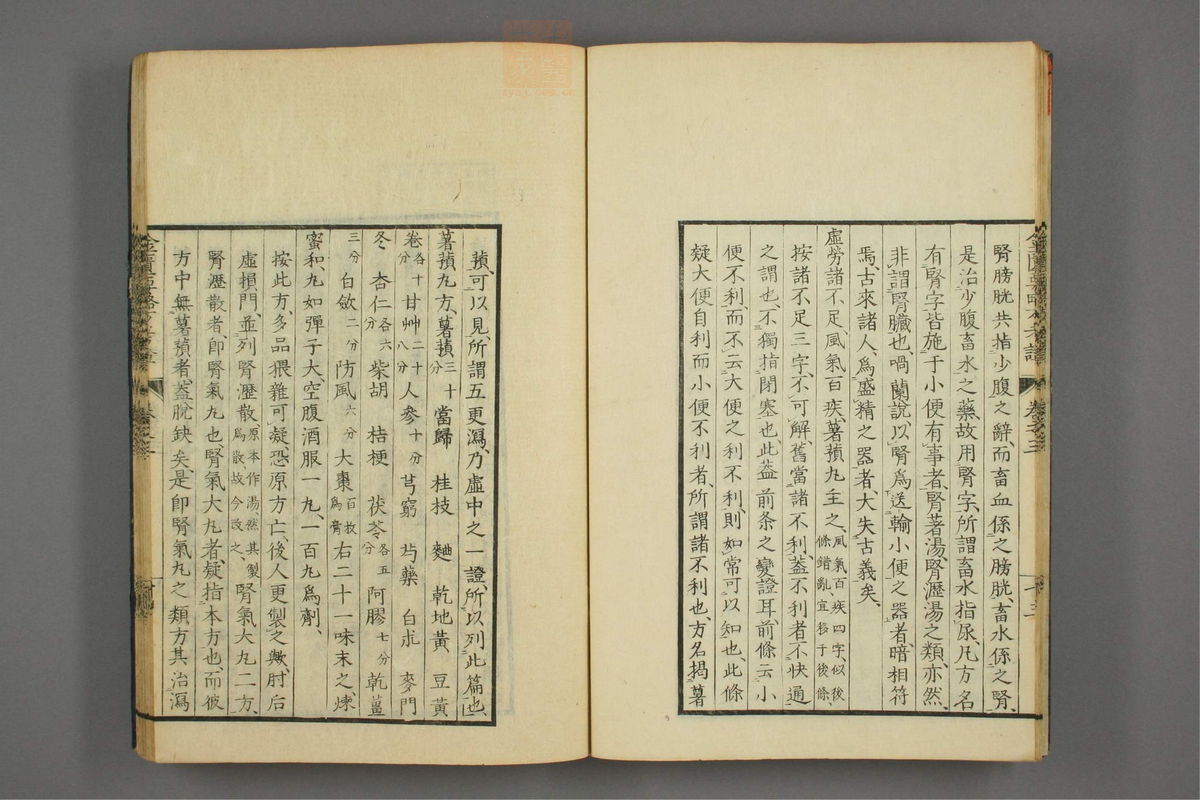 腎膀胱共指少腹之辭、而畜血係之膀胱、畜水係之腎、
是治少腹畜水之藥、故用腎字、所謂畜水指尿、凡方名
有腎字皆施于小便有事者、腎著湯、腎瀝湯之類、亦然、
非謂腎臟也、喎蘭說、以腎爲送輸小便之器者、暗相符
焉、古來諸人、爲盛精之器者、大失古義矣、
虛勞諸不足、風氣百疾、薯蕷丸主之、風氣百疾四字、似後條錯亂、宜移于後條、
按諸不足三字、不可解、舊當諸不利、蓋不利者、不快通
之謂也、不獨指閉塞也、此蓋前条之變證耳、前條云、小
便不利、而不云大便之利不利、則如常可以知也、此條
疑大便自利而小便不利者、所謂諸不利也、方名揭薯
蕷、可以見、所謂五更瀉、乃虛中之一證、所以列此篇也、
薯蕷丸方、薯蕷三十分 當歸 桂枝 麯 乾地黃 豆黃
卷各十分 甘艸二十八分 人參十分 芎藭 芍藥 白朮 麥門
冬 杏仁各六分 柴胡 桔梗 茯苓各五分 阿膠七分 乾薑
三分 白斂二分 防風六分 大棗百枚爲膏 右二十一味末之、煉
蜜和、丸如彈子大、空腹酒服一丸、一百丸爲劑、
按此方、多品猥雜可疑、恐原方亡、後人更製之歟、肘后
虛損門、並列腎瀝散原本作湯、然其製爲散、故今改之、腎氣大丸二方、
腎瀝散者、卽腎氣丸也、腎氣大丸者、疑指本方也、而彼
方中無薯蕷者、蓋脫缺矣、是卽腎氣丸之類方、其治瀉